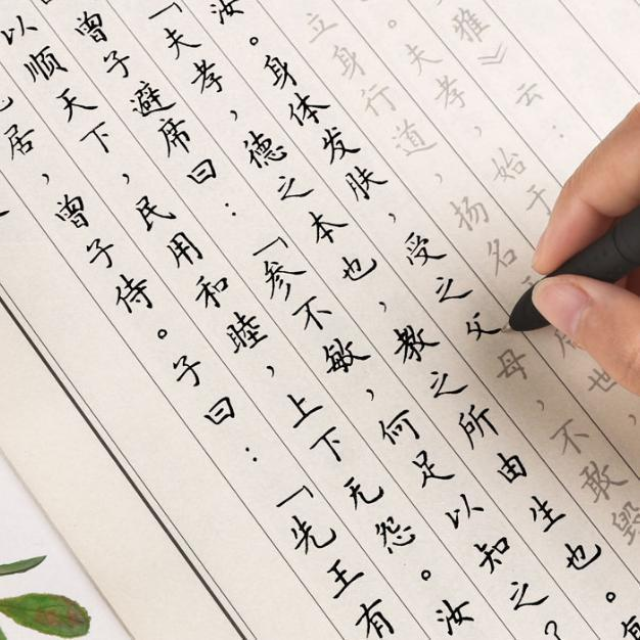 居，曾子侍。子曰：「先王有
以顺天下，民用和睦，上下无怨。汝
曾子避席曰：「参不敏，何足以知之？
「夫孝，德之本也，教之所由生也。
汝。身体发肤，受之父母，不敢毁
立身行道，扬名
世，
。夫孝，始于
雅》云：